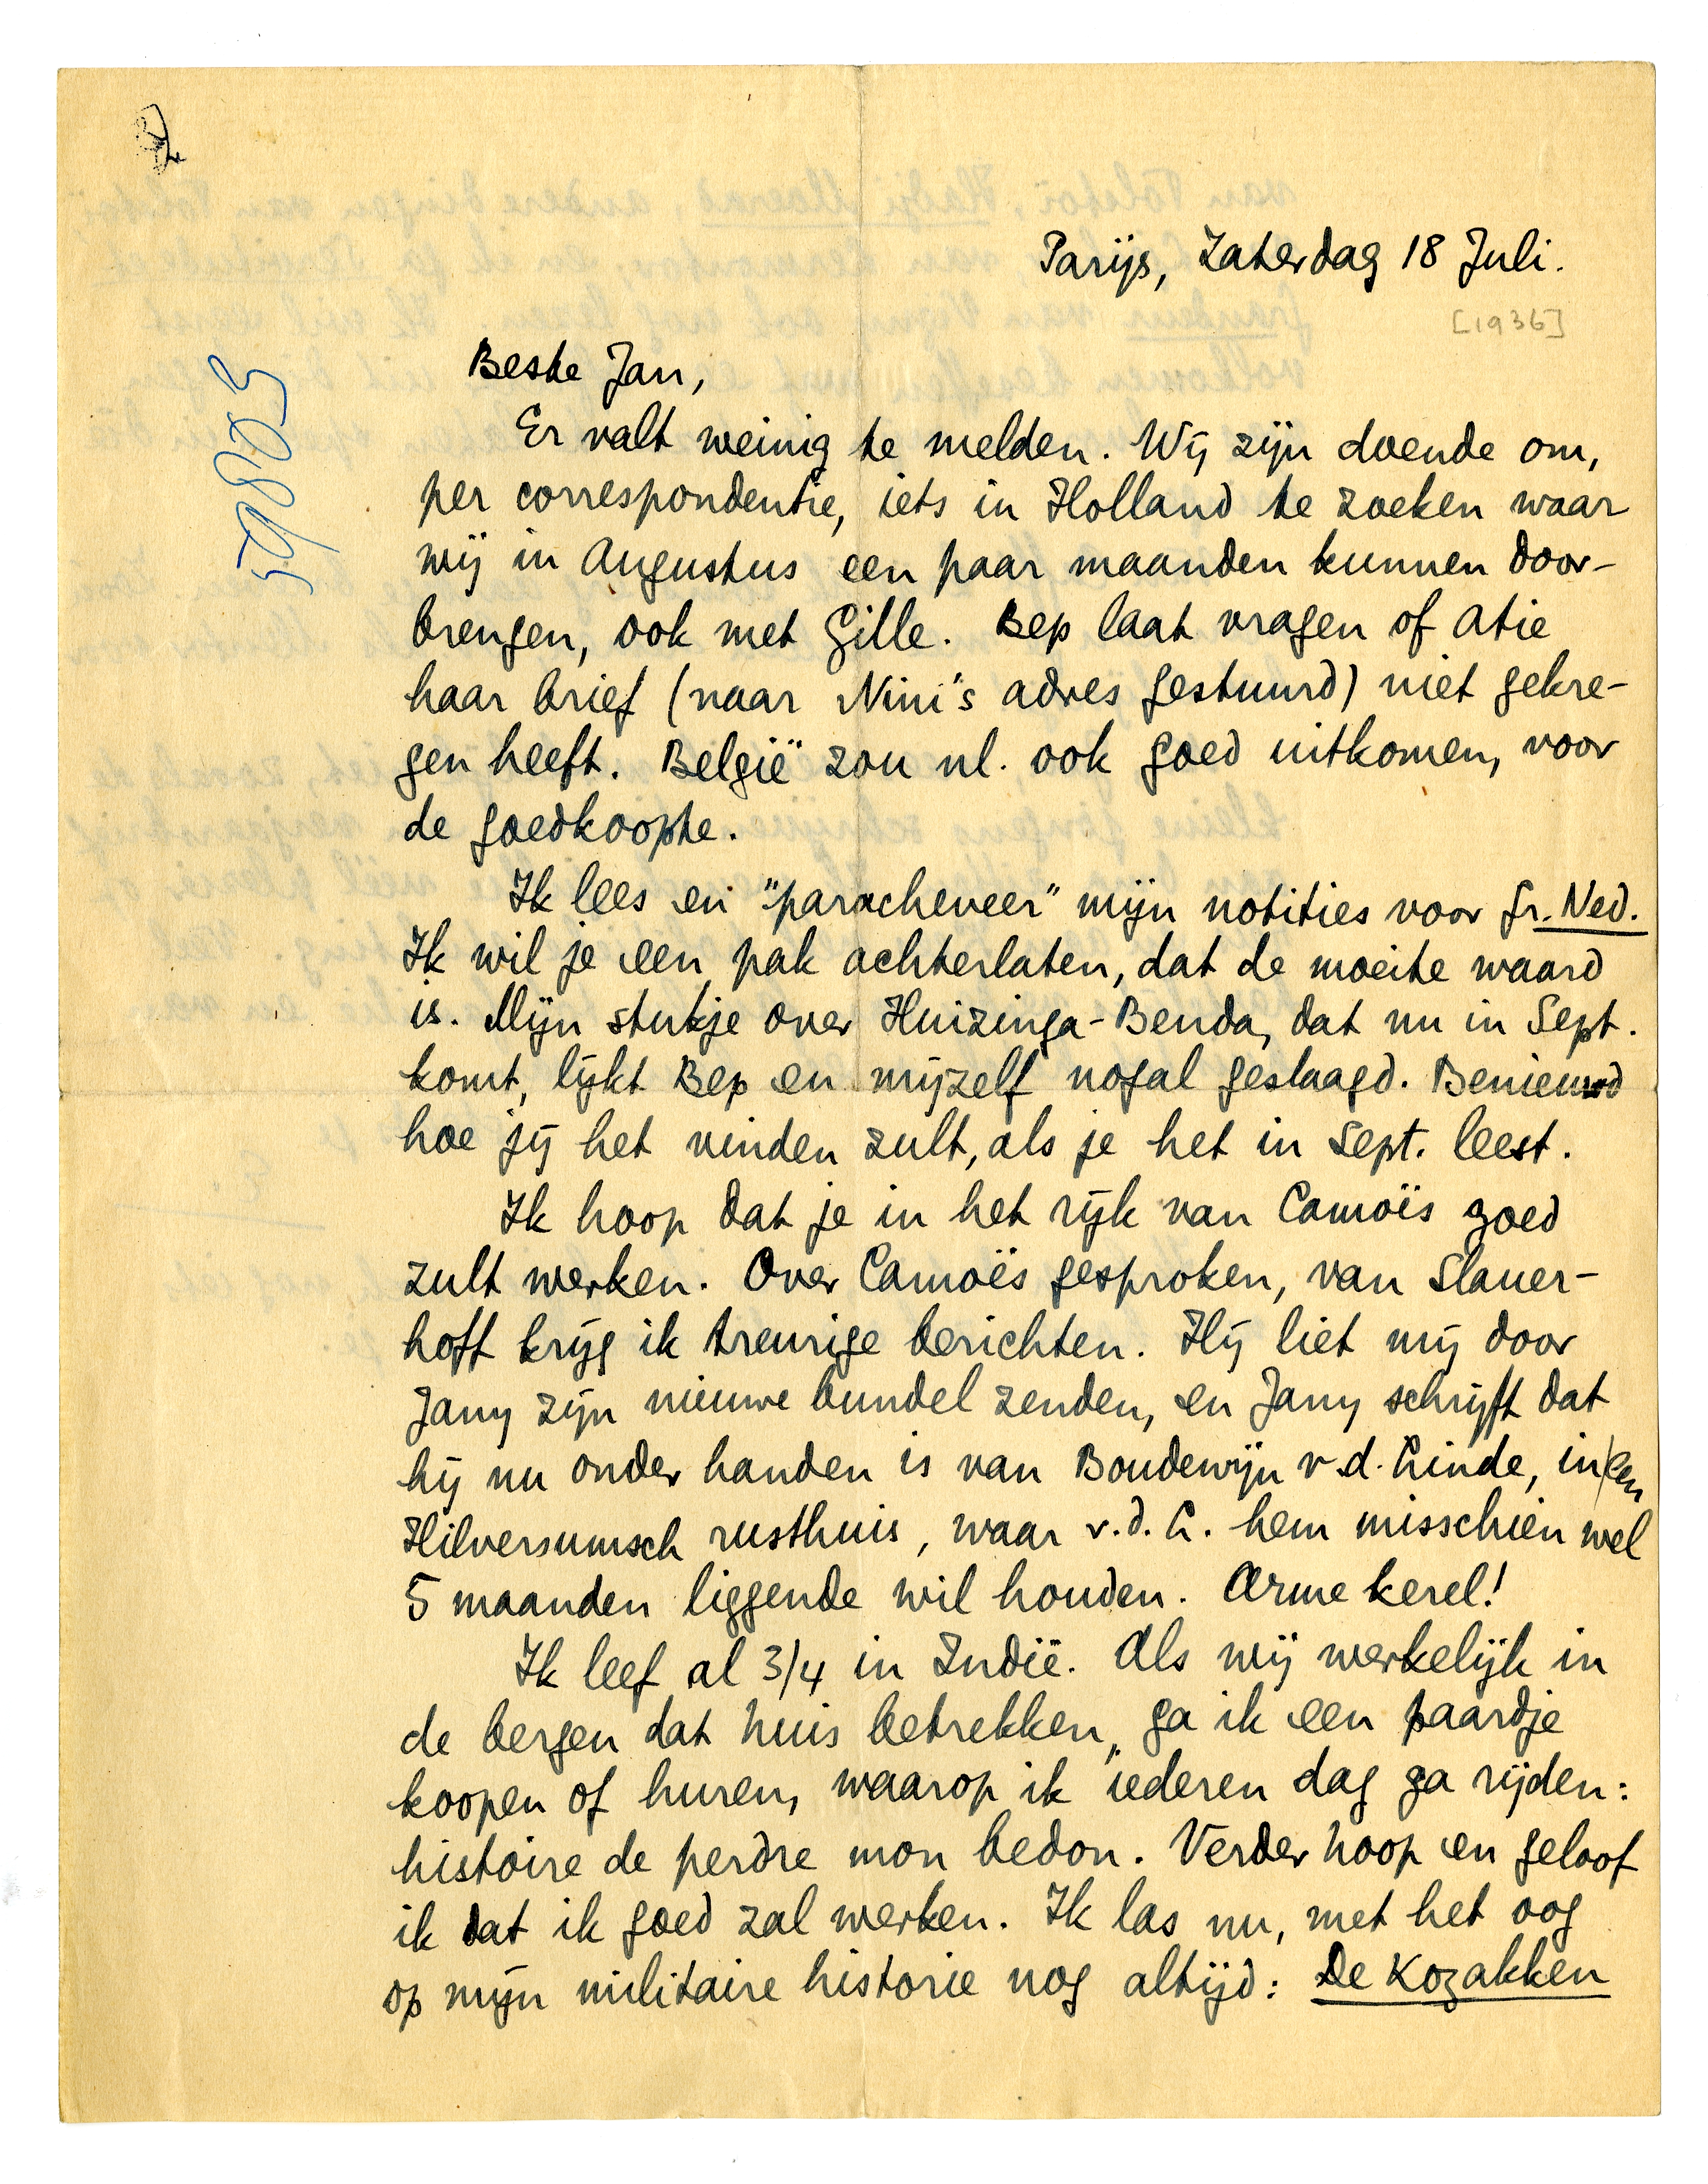 Parijs, Zaterdag 18 Juli.
[1936]
59803
Beste Jan,
Er valt weinig te melden. Wij zijn doende om,
per correspondentie, iets in Holland te zoeken waar
wij in Augustus een paar maanden kunnen door-
brengen, ook met Gille. Bep laat vragen of Atie
haar brief (naar Nini's adres gestuurd) niet gekre-
gen heeft. België zou nl. ook goed uitkomen, voor
de goedkoopte.
Ik lees en "paracheveer" mijn notities voor Gr. Ned.
Ik wil je een pak achterlaten, dat de moeite waard
is. Mijn stukje over Huizinga-Benda, dat nu in Sept.
komt, lijkt Bep en mijzelf nogal geslaagd. Benieuwd
hoe jij het vinden zult, als je het in Sept. leest.
Ik hoop dat je in het rijk van Camoës goed
zult werken. Over Camoës gesproken, van Slauer-
hoff krijg ik treurige berichten. Hij liet mij door
Jany zijn nieuwe bundel zenden, en Jany schrijft dat
hij nu onder handen is van Boudewijn v.d. Linde, in een
Hilversumsch rusthuis, waar v.d. L. hem misschien wel
5 maanden liggende wil houden. Arme kerel!
Ik leef al 3/4 in Indië. Als wij werkelijk in
de bergen dat huis betrekken, ga ik een paardje
koopen of huren, waarop ik iederen dag ga rijden:
histoire de perdre mon bedon. Verder hoop en geloof
ik dat ik goed zal werken. Ik las nu, met het oog
op mijn militaire historie nog altijd: De Kozakken